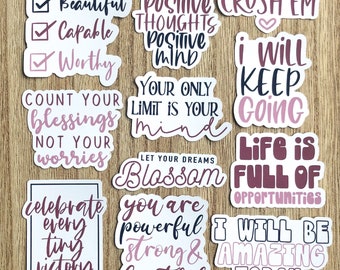 Beautiful
Capable
Worthy
COUNT YOUR
blessings
NOT YOUR
worries
celebrate
every
tiny
victory
POSITIVE
THOUGHTS
POSITIVE
MIND
YOUR ONLY
LIMIT IS YOUR
mind
LET YOUR DREAMS
Blossom
you are
powerful
strong &
CRUSH 'EM
i WiLL
KEEP
GOiNG
LiFE iS
FULL OF
OPPORTUNITIES
I WILL BE
AMAZING